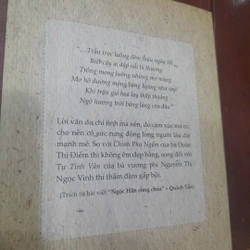 "...Trằn trọc luống đêm thâu ngày tối,
Biết cậy ai dập nỗi bi thương
Trông mong luống những mơ màng
Mơ hồ đường mộng bàng hoàng như say!
Khi trận gió hoa lay thấp thoáng
Ngỡ hương trời bảng lảng còn đâu"
Lời văn dạ chí tình mà nên, do cảm xúc mà có,
cho nên có sức rung động lòng người lâu dài
mạnh mẽ. So với Chinh Phụ Ngâm của bà Đoàn
Thị Điểm thì không êm đẹp bằng, song đối với
Tự Tình Vãn của bà vương phi Nguyễn Thị
Ngọc Vinh thì thấm đậm gấp bội.
(Trích từ bài viết "Ngọc Hân công chúa" - Quách Tấn)